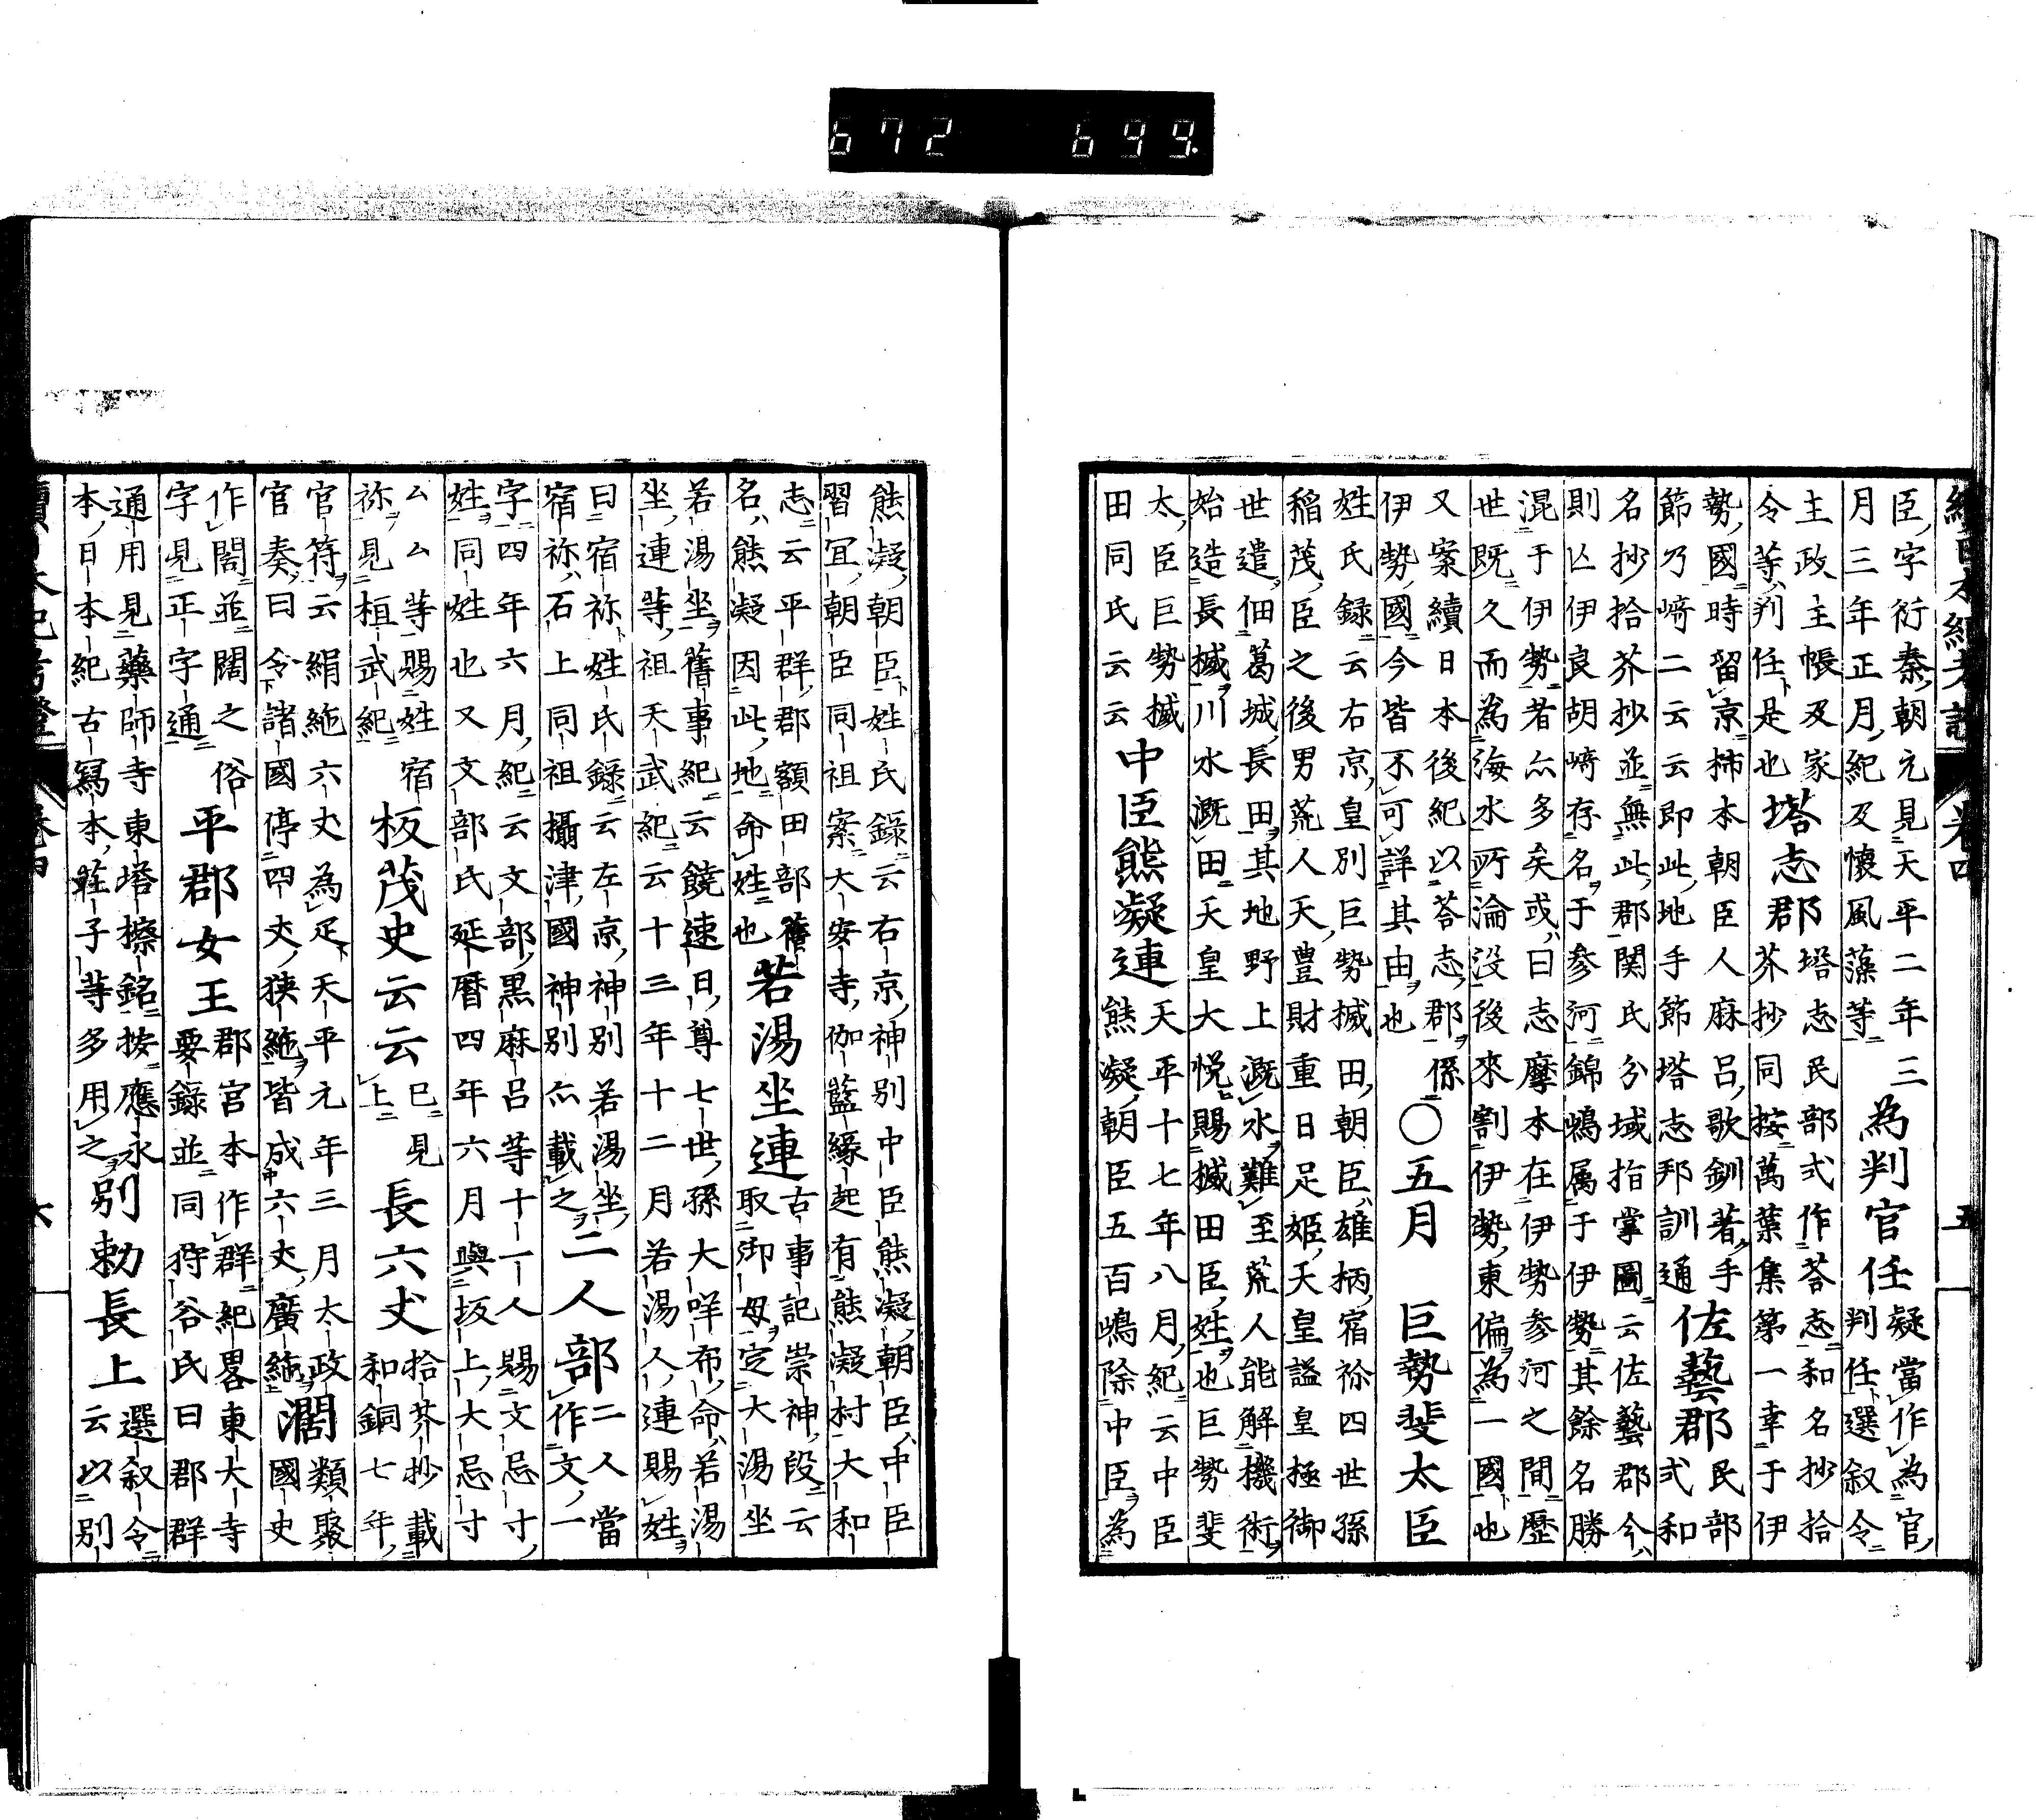 672 699.
續日本紀考證 卷四 五
臣、字衍秦、朝元見天平二年三
月三年正月、紀及懷風藻等
為判官任
疑當作為官、
判任選叙令
主政主帳及家
令等、判任是也
塔志郡
塔志民部式作荅志和名抄拾
芥抄同按萬葉集第一幸于伊
勢、國時留京柿本朝臣人麻呂、歌釧著手
節乃﨑二云云即此、地手節塔志邦訓通
佐藝郡
民部
式和
名抄拾芥抄並無此、郡関氏分域指掌圖云佐藝郡今、
則亾伊良胡﨑存名于参河錦嶋属于伊勢其餘名勝
混于伊勢者亦多矣或、曰志摩本在伊勢参河之間歷
世既久而為海水所淪没後來割伊勢、東偏為一國也
又案續日本後紀以荅志、郡係
伊勢、國今皆不可詳其由也
〇五月 巨勢斐太臣
姓氏録云右京、皇別巨勢槭田、朝臣、雄柄、宿祢四世孫
稲茂、臣之後男荒人天、豊財重日足姬、天皇謚皇極御
世遣佃葛城、長田其地野上溉水難至荒人能解機術
始造長槭川水溉田天皇大悅賜槭田臣、姓也巨勢斐
太、臣巨勢槭
田同氏云云
中臣熊凝連
天平十七年八月、紀云中臣
熊凝朝臣五百嶋除中臣為
熊凝、朝臣姓氏錄云右京、神別中臣熊凝、朝臣、中臣
習宜、朝臣同祖案大安寺、伽藍緣起有熊凝村大和
志云平群、郡額田部舊
名、熊凝因此、地命姓也
若湯坐連
古事記崇神、段云
取御母定大湯坐
若湯坐舊事紀云饒速日、尊七世、孫大咩布、命、若湯
坐、連等、祖天武紀云十三年十二月若湯人、連賜姓
曰宿祢姓氏錄云左京、神別若湯坐、
宿祢、石上同祖攝津、國神別亦載之
二人部
二人當
作文、一
字四年六月、紀云文部、黑麻呂等十一人賜文忌寸、
姓同姓也又文部氏延曆四年六月與坂上、大忌寸
厶厶等賜姓宿
祢見桓武紀
板茂史云云
已見
上
長六丈
拾芥抄載
和銅七年、
官符云絹絁六丈為疋天平元年三月太政
官奏曰令諸國停四丈、狭絁皆成六丈、廣絁
濶
類聚
國史
作闊並闊之俗
字見正字通
平郡女王
郡宮本作群紀畧東大寺
要錄並同狩谷氏曰郡群
通用見藥師寺東塔擦銘按應永
本、日本紀古寫本、莊子等多用之
別勅長上
選叙令
云以別
續日本紀考證 卷四 六